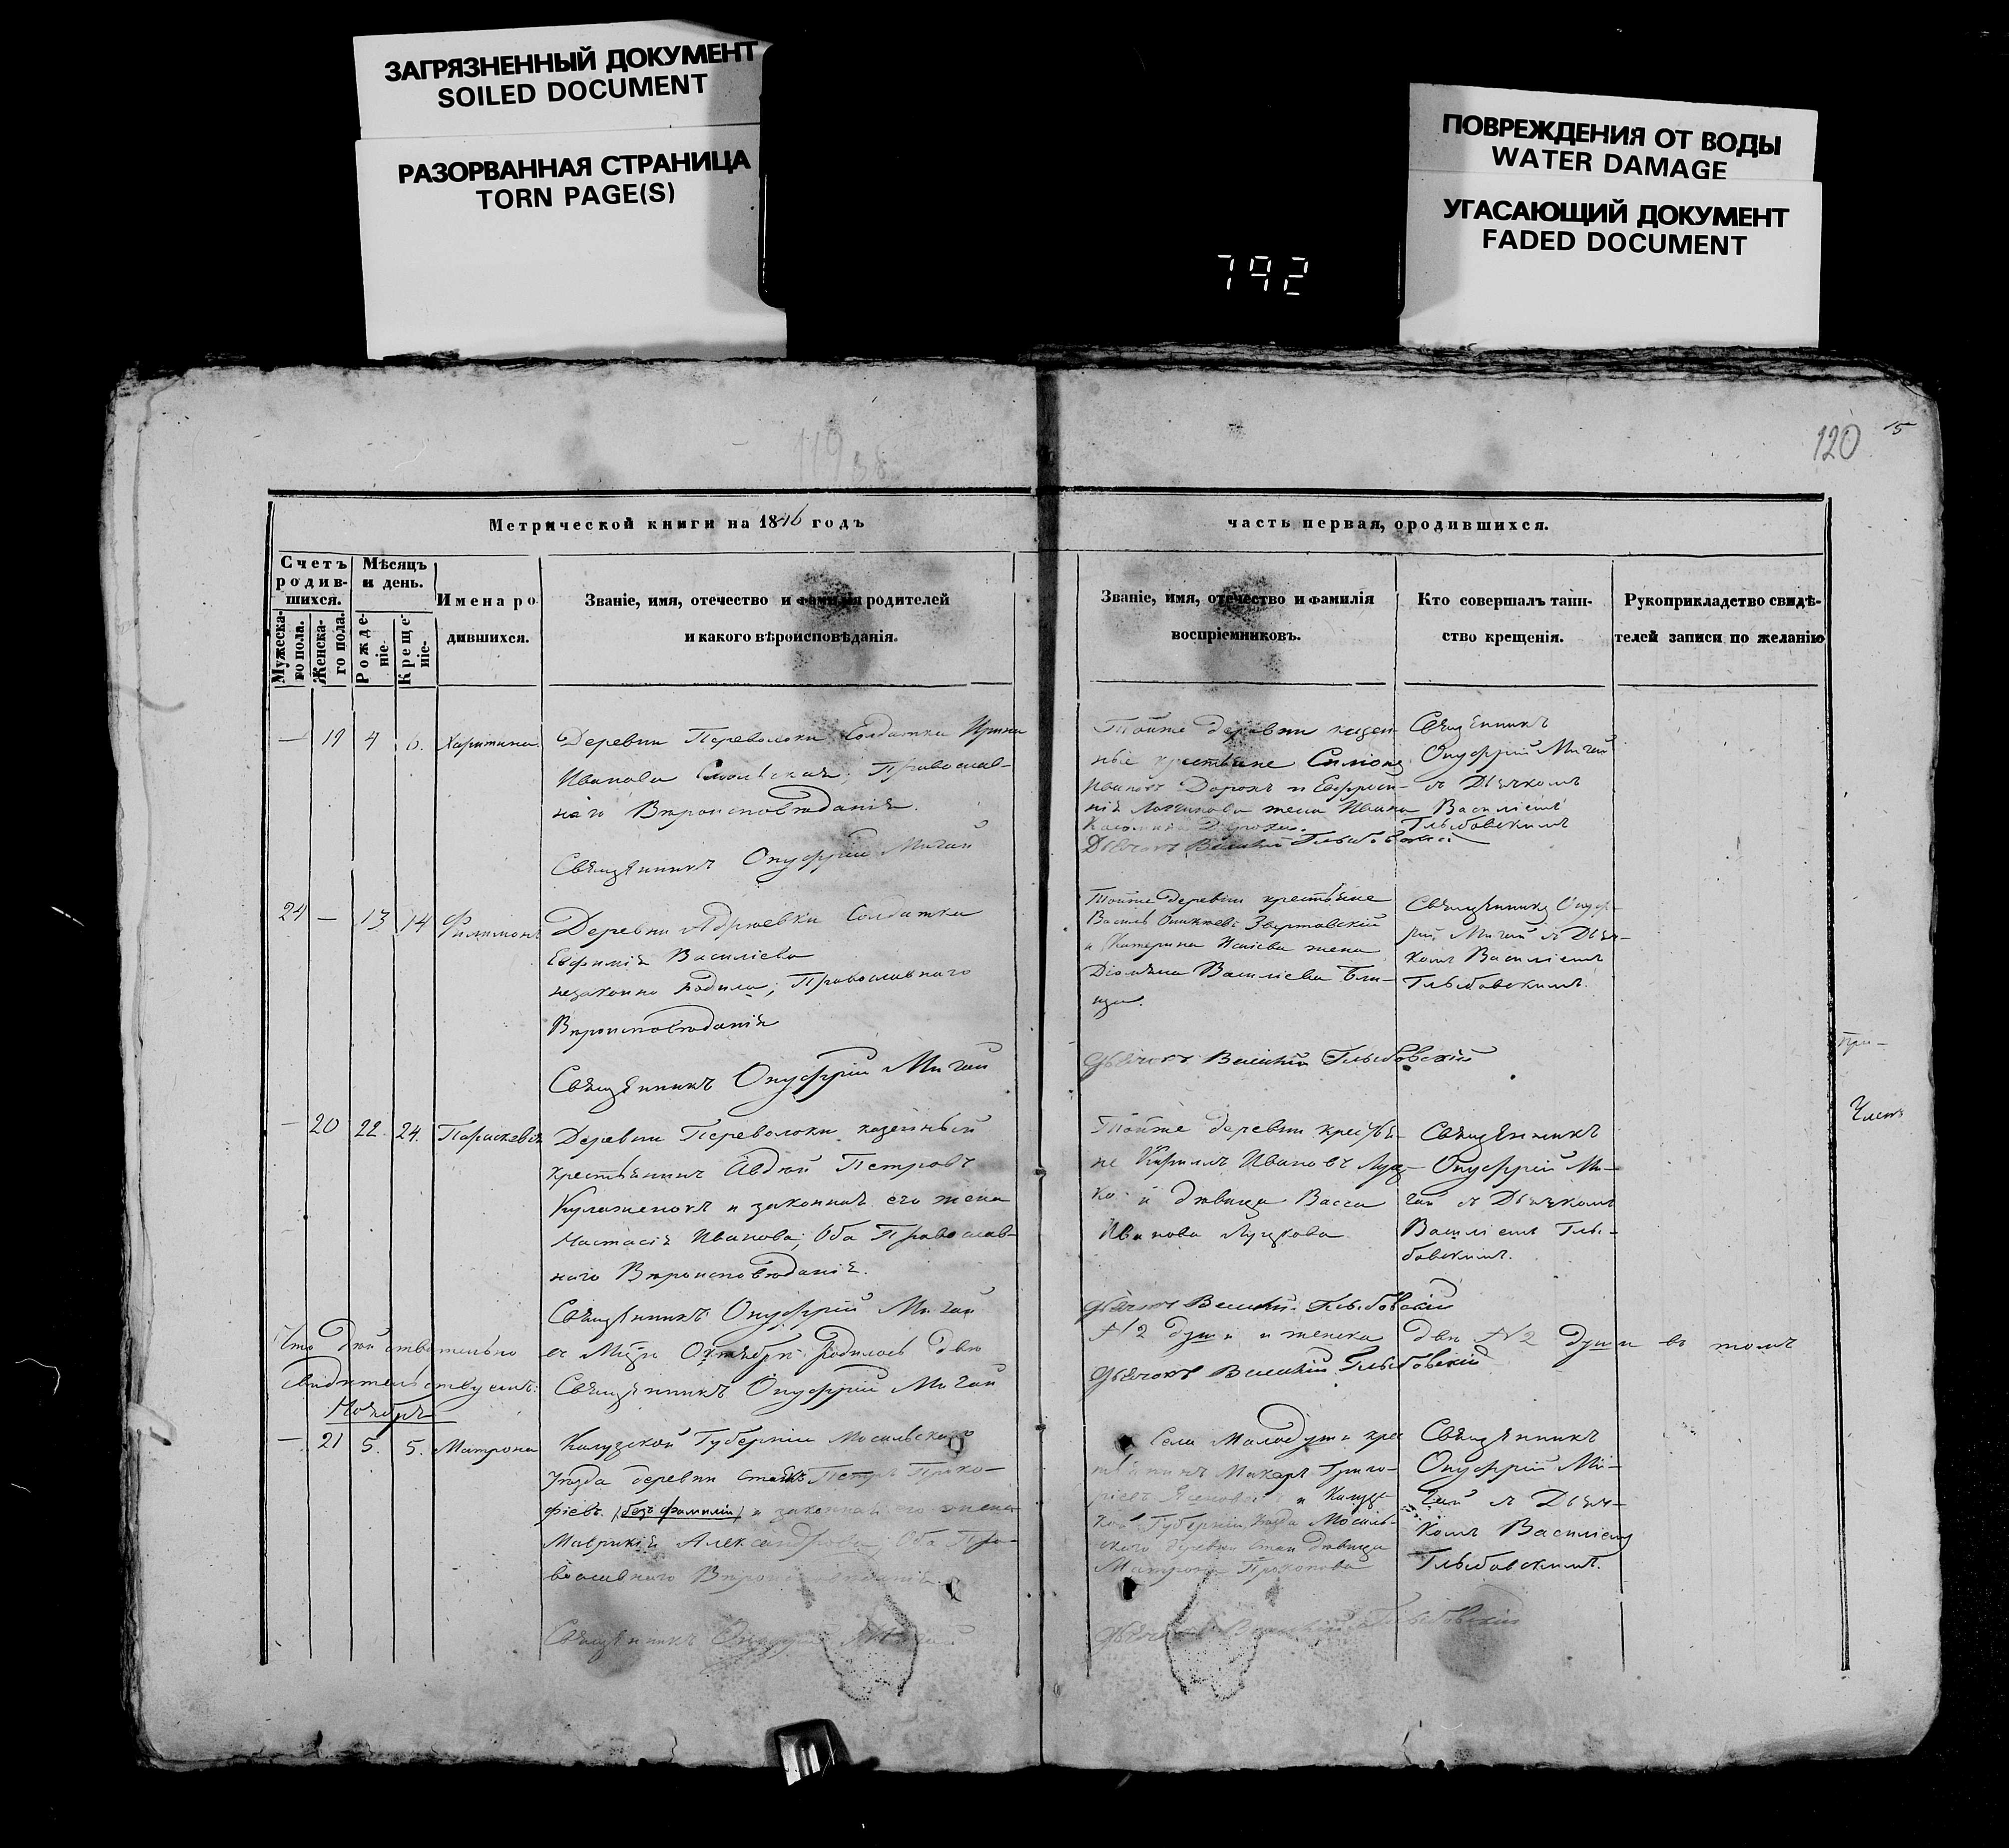 ЗАГРЯЗНЕННЫЙ ДОКУМЕНТ
SOILED DOCUMENT
РАЗОРВАННАЯ СТРАНИЦА
TORN PAGE(S)
ПОВРЕЖДЕНИЯ ОТ ВОДЫ
WATER DAMAGE
УГАСАЮЩИЙ ДОКУМЕНТ
FADED DOCUMENT
792
120
15
119
Метрической книги на 1846 годъ
часть первая, ородившихся.
Счетъ родив-шихся.
Мужеска-го пола.
Женска-го пола.
Мѣсяцъ и день.
Рожде-ніе.
Креще-ніе.
Имена ро
дившихся.
Званіе, имя, отечество и фамилія родителей
и какого вѣроисповѣданія.
Званіе, имя, отечество и фамилія
воспріемниковъ.
Кто совершалъ таин-
ство крещенія.
Рукоприкладство свидѣ-
телей записи по желанію
— 19 4 6. Харитина.
Деревни Переволоки Солдатка Ирина
Иванова Православ-
наго Вѣроисповѣданія.
Священникъ Онуфрій Мигай
Тойже деревни казен
ные крестьяне Симонъ
Ивановъ и Ефроси-
нія жена Ивана
Дьячокъ Василій Глыбовскій
Священникъ
Онуфрій Мигай
съ Дьячкомъ
Василіемъ
Глыбовскимъ
24 — 13 14 Филимонъ
Деревни Солдатка
Евфимія Василіева
незаконно родила; Православнаго
Вѣроисповѣданія
Священникъ Онуфрій Мигай
Тойже деревни крестьяне
Василь
и Катерина жена
Василіева
Дьячокъ Василій Глыбовскій
Священникъ Онуф-
рій Мигай съ Дьяч-
комъ Василіемъ
Глыбовскимъ.
— 20 22. 24. Параскевія
Деревни Переволоки казенный
крестьянинъ Авдей Петровъ
и законная его жена
Настасія Иванова; Оба Православ-
наго Вѣроисповѣданія.
Священникъ Онуфрій Мигай
Тойже деревни крестья-
не Кириллъ Ивановъ
и дѣвица Васса
Иванова
Дьячокъ Василій Глыбовскій
Священникъ
Онуфрій Ми-
гай съ Дьячкомъ
Василіемъ Глы-
бовскимъ.
Что дѣйствительно въ Октябрѣ родилось двѣ № 2 души и женска двѣ № 2 души въ томъ
свидѣтельствуемъ: Священникъ Онуфрій Мигай Дьячокъ Василій Глыбовскій
Ноябрь
— 21 5. 5. Матрона
Калузской Губерніи Мосальскаго
уѣзда деревни Петръ Проко-
фіевъ (безъ фамиліи) и законная его жена
Маврикія Александрова, Оба Пра-
вославнаго Вѣроисповѣданія.
Священникъ Онуфрій Мигай
Села Малодуши крес
тьянинъ Макаръ Григо-
ріевъ и Калузс-
кой Губерніи уѣзда Мосаль-
скаго деревни дѣвица
Матрона Прокопова
Дьячокъ Василій Глыбовскій
Священникъ
Онуфрій Ми-
гай съ Дьяч-
комъ Василіемъ
Глыбовскимъ.